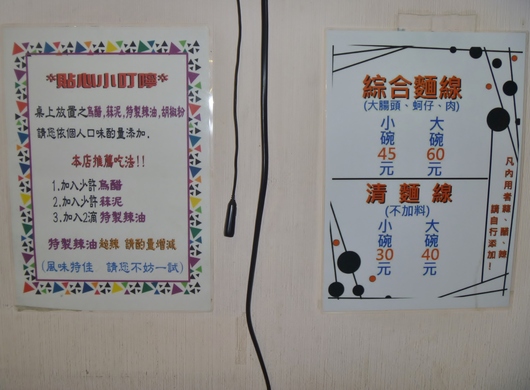 *貼心小叮嚀*
桌上放置之烏醋,蒜泥,特製辣油,胡椒粉
請您依個人口味酌量添加.
本店推薦吃法!!
1.加入少許烏醋
2.加入少許蒜泥
3.加入2滴特製辣油
特製辣油超辣 請酌量增減
(風味特佳 請您不妨一試)
綜合麵線
(大腸頭、蚵仔、肉)
小碗45元
大碗60元
清麵線
(不加料)
小碗30元
大碗40元
凡內用者
請自行添加!